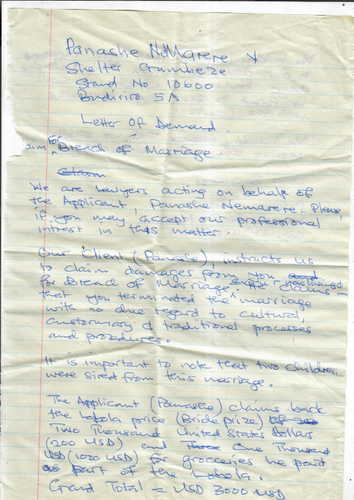 Panashe NeMarere v
Shelter Gumbeze
Stand No 10600
Budiriro 5A
Letter Of Demand.
For
Breach of Marriage.
Claim
We are lawyers acting on behalf of
the Applicant, Panashe Nemarere. Please,
if you may accept our professional
interest in this matter.
Our client (Panashe), instructs us
to claim damages from you
for Breach of Marriage.
that you terminated the marriage
with no due regard to cultural,
customary & traditional processes
and procedures.
It is important to note that two children
were sired from this marriage.
The Applicant (Panashe) claims back
the lobola price (Bride prize)
Two Thousand United States Dollars
(200 USD) and one Thousand
USD (1020 USD) for groceries he paid
as part of the lobola.
Grand Total = USD 3000 USD